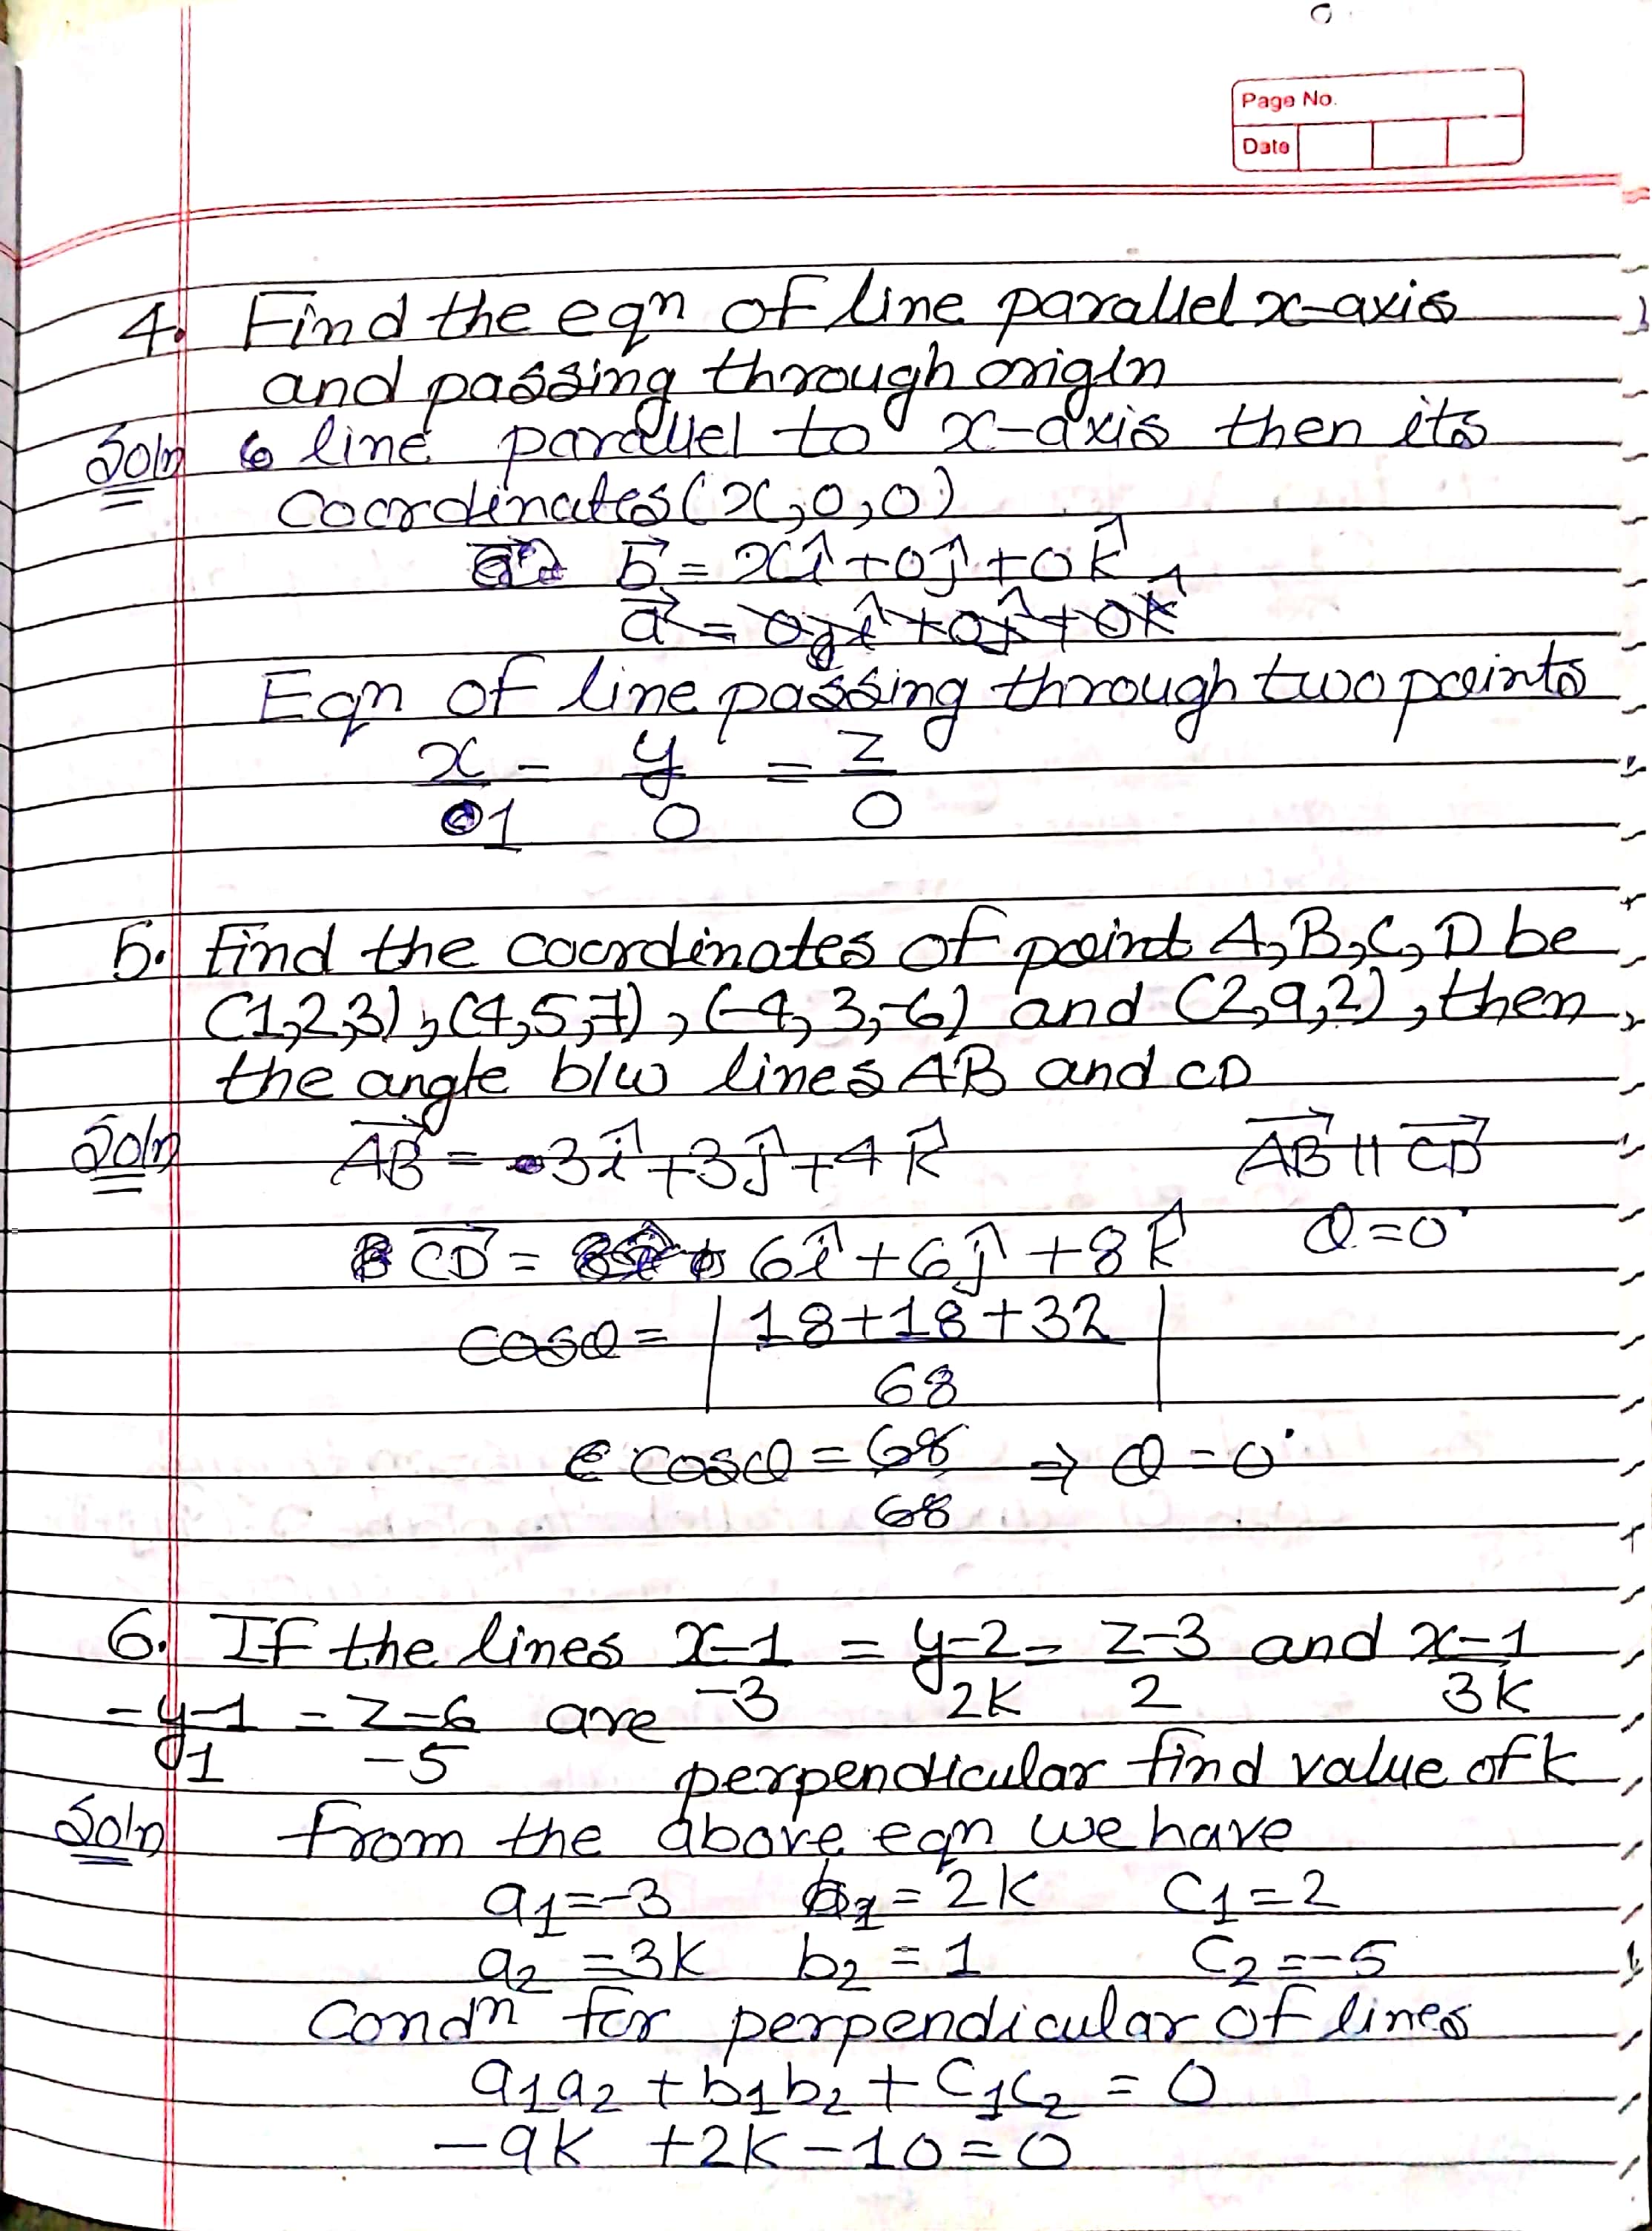 Page No.
Date
4. Find the eqn of line parallel x-axis
and passing through origin
Soln line parallel to x-axis then its
Coordinates (x,0,0)
b⃗ = xî+0ĵ+0k̂
a⃗ = 0î+0ĵ+0k̂
Eqn of line passing through two points
x/1 = y/0 = z/0
5. Find the coordinates of point A,B,C,D be
(1,2,3), (4,5,7), (-4,3,-6) and (2,9,2), then
the angle b/w lines AB and CD
Soln AB⃗ = 3î+3ĵ+4k̂ AB⃗ || CD⃗
CD⃗ = 6î+6ĵ+8k̂ θ=0°
cosθ = |18+18+32/68|
cosθ = 68/68 ⇒ θ=0°
6. If the lines x-1/-3 = y-2/2k = z-3/2 and x-1/3k
= y-1/1 = z-6/-5 are
perpendicular find value of k
Soln from the above eqn we have
a1=-3 b1=2k C1=2
a2=3k b2=1 C2=-5
Condn for perpendicular of lines
a1a2+b1b2+C1C2=0
-9k+2k-10=0